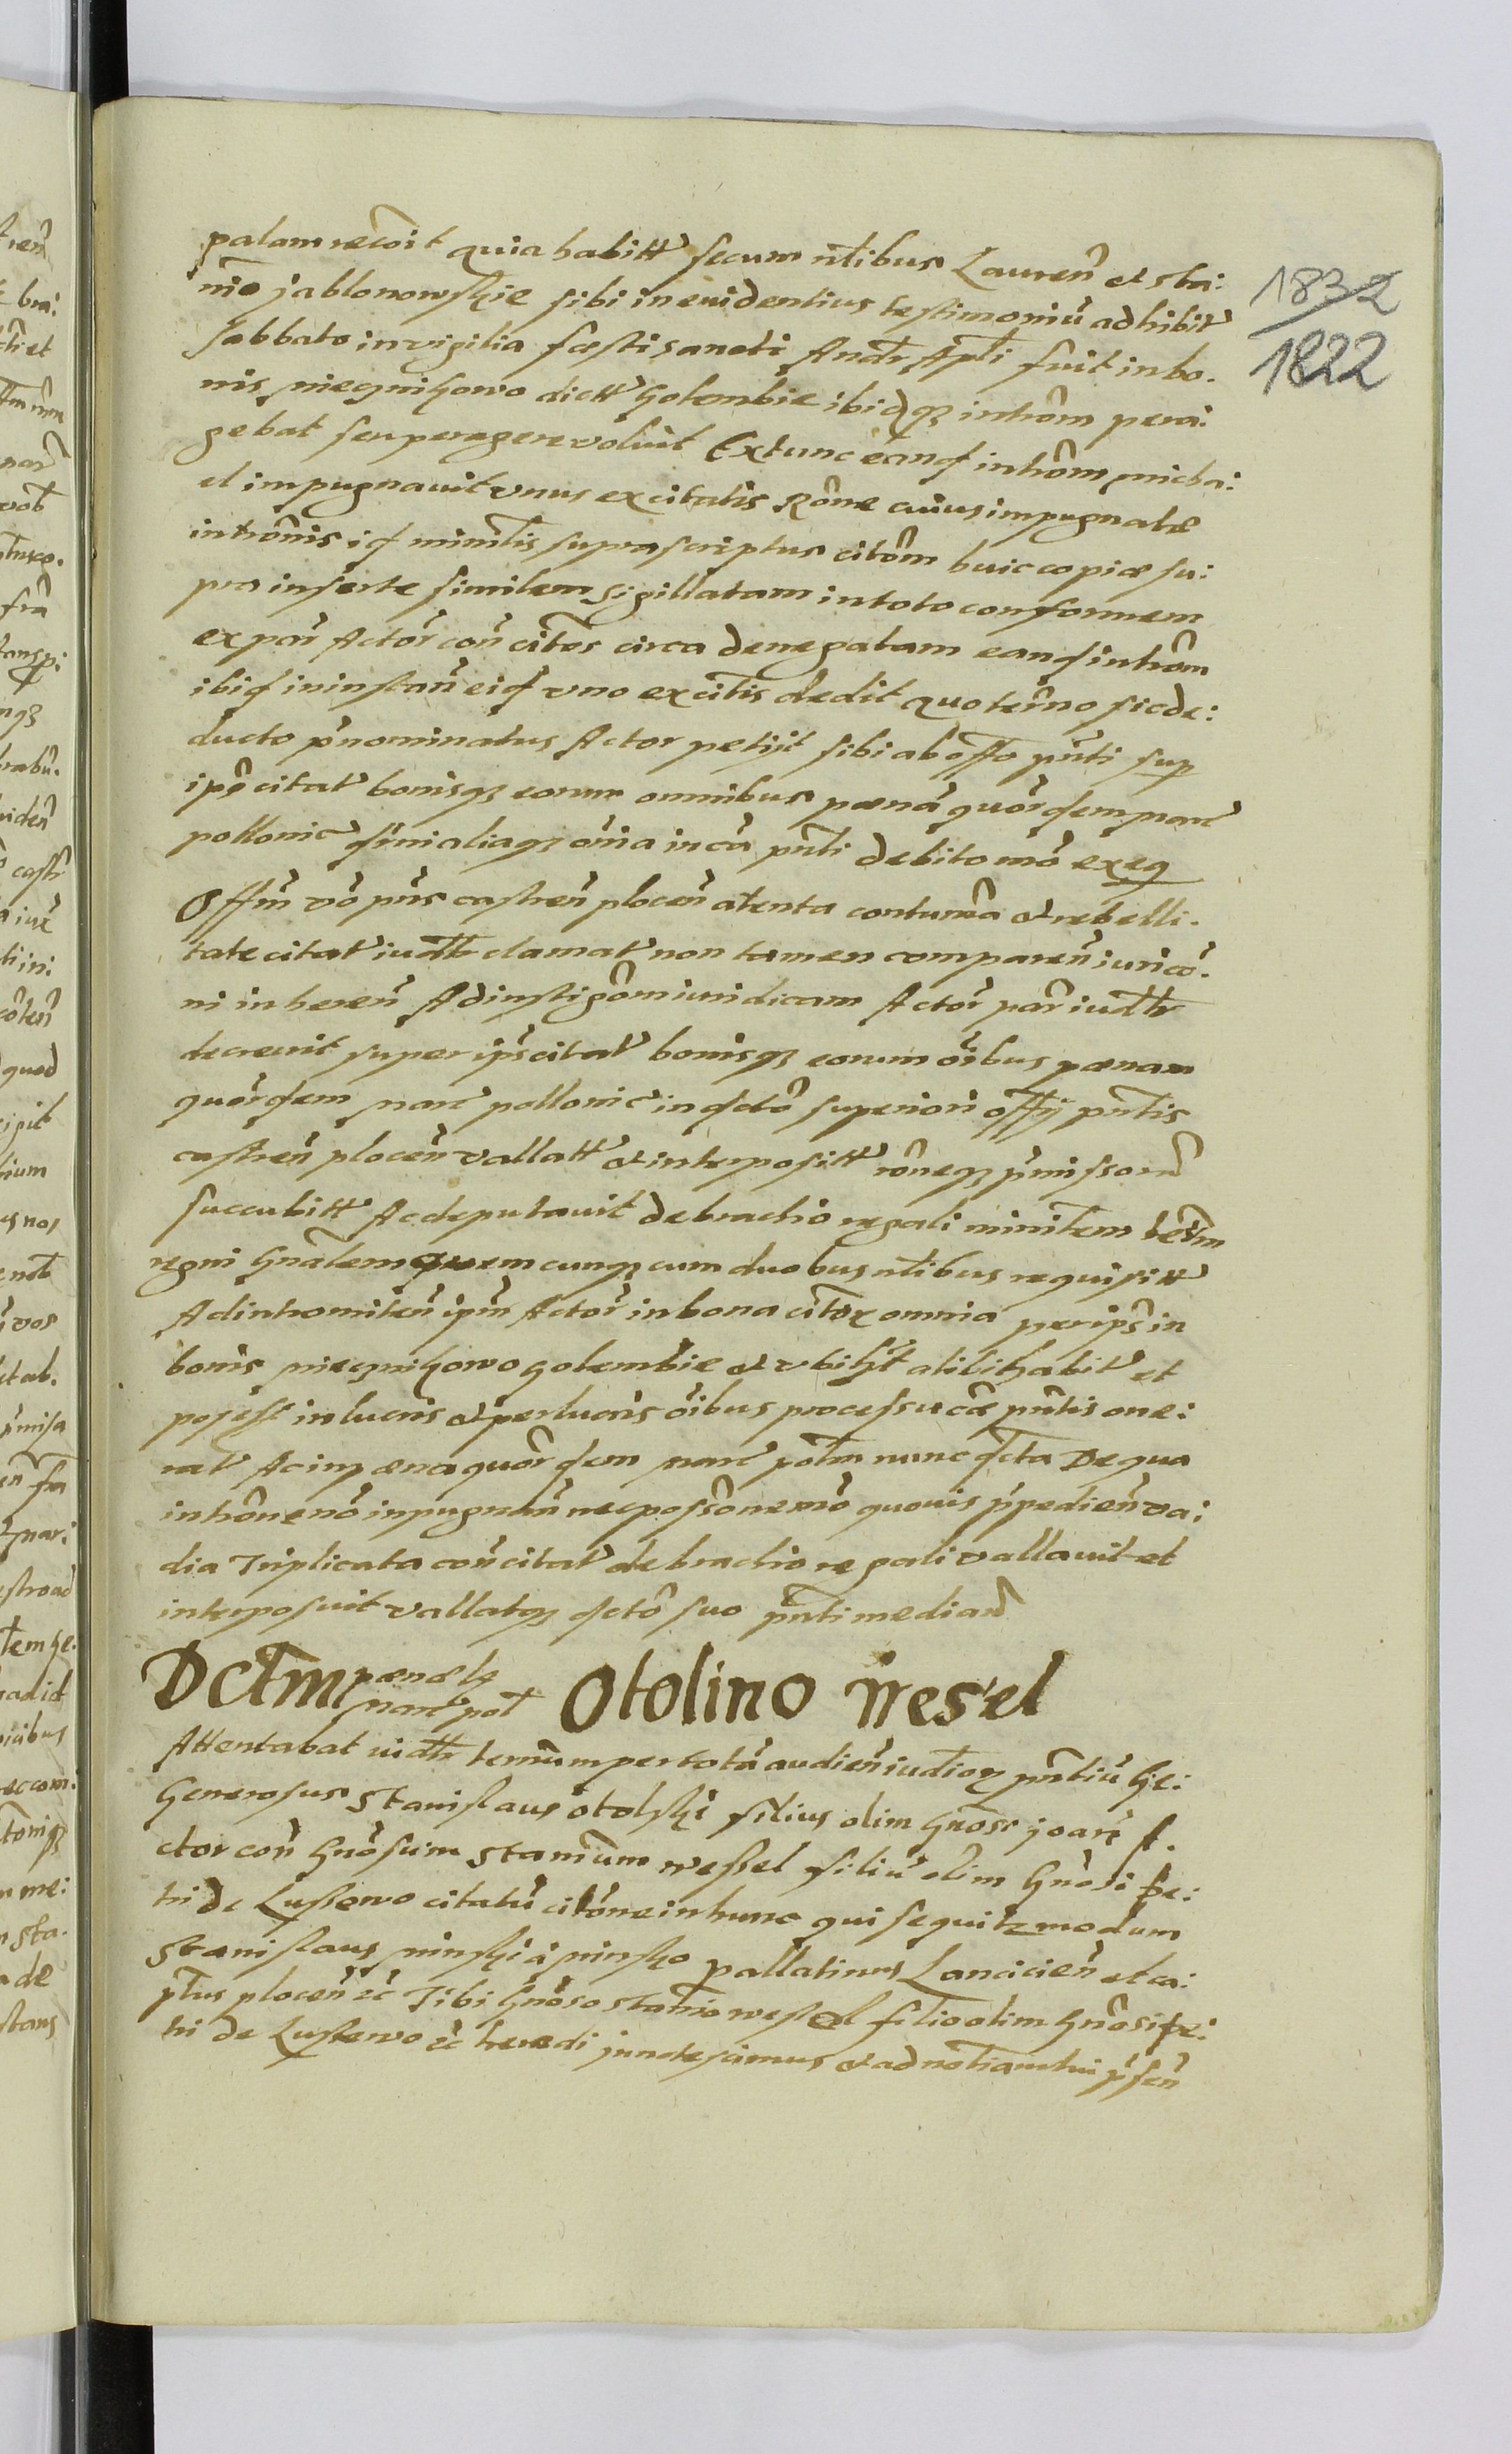 palam recoit quia habitt secum ntlibus Lauren et Sta:
nio Jablonowskie sibi in euidentius testimoniu adhibit
sabbato in vigilia festi sancti Andr Apli fuit in bo.
nis miegnihowo dictt Golembie ibidqz introm pera:
gebat seu peragere voluit Extunc eand introm michi:
et impugnauit vnus ex citatis Rone cuius impugnatae
intromis id ministlis suprascriptus citom huic copiae su:
pra inserte similem sigillatam in toto conformem
ex par Actor con citos circa denegatam eand introm
ibid in instan eid vno ex citis dedit quo termo sic de:
ducto pnominatus Actor petijt sibi ab offo pnti sup
ips citat bonisqz eorum omnibus paena quor dem marc
pollonic dmi aliaqz omia in ca pnti debito mo exeq
Offm vo pns castren plocen atenta contuma et rebelli.
tate citat iudtr clamat non tamen comparen iuri co.
ni inheren Ad instigom iuridicam Actor par iudtr
decreuit super ips citat bonisqz eorum oibus paenam
quor dem marc pollonic in dcto superiori offij pntis
castren plocen vallatt et interpositt roneqz pmissoru
succubitt Ac deputauit de brachio regali ministem terrm
regni Gnalem quemcunqz cum duobus ntlibus requisitt
Ad intromiten ipm Actor in bona citor omnia per ips in
bonis miegnihowo Golembie et vbilst alibi habit et
possess in lucris et perlucris oibus processu cae pntis one:
rat Ac in paena quor dem marc polm nunc dcta De qua
introne no inpugnan nec possone mo quouis ppedien va:
dia Triplicata con citat de brachio regali vallauit et
interposuit vallatqz dcto suo pnti median
Dctm paenae 14 marc pol Otolino Wesel
Attentabat iudtr termum per tota audien iudtior pntiu Ge:
Generosus Stanislaus otolski filius olim Gnosi joan A.
ctor con Gnosum Stanium wessel filiu olim Gnosi Pe:
tri de Lussewo citatu citone in hunc qui sequitr modum
Stanislaus minski a minsko pallatinus Lancicien et ca:
ptus plocen ec Tibi Gnoso Stanio wessel filio olim Gnosi Pe:
tri de Lussewo ec heredi innotescimus et ad notiam tui psen
1832
1822